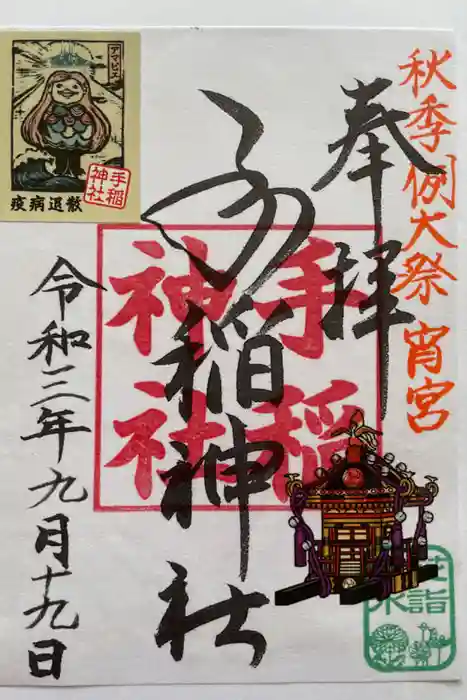 秋季例大祭 宵宮
奉拝
手稲神社
令和三年九月十九日
手稲
神社
アマビエ
疫病退散
手稲
神社
詣
水